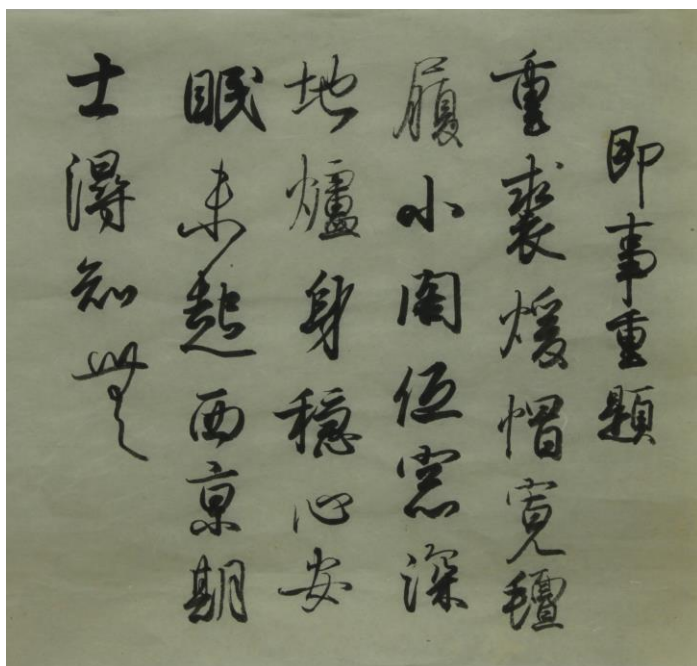 即事重題
重裘煖帽寬氈
履小閣低窓深
地爐身穩心安
眠未起西京期
士得知無